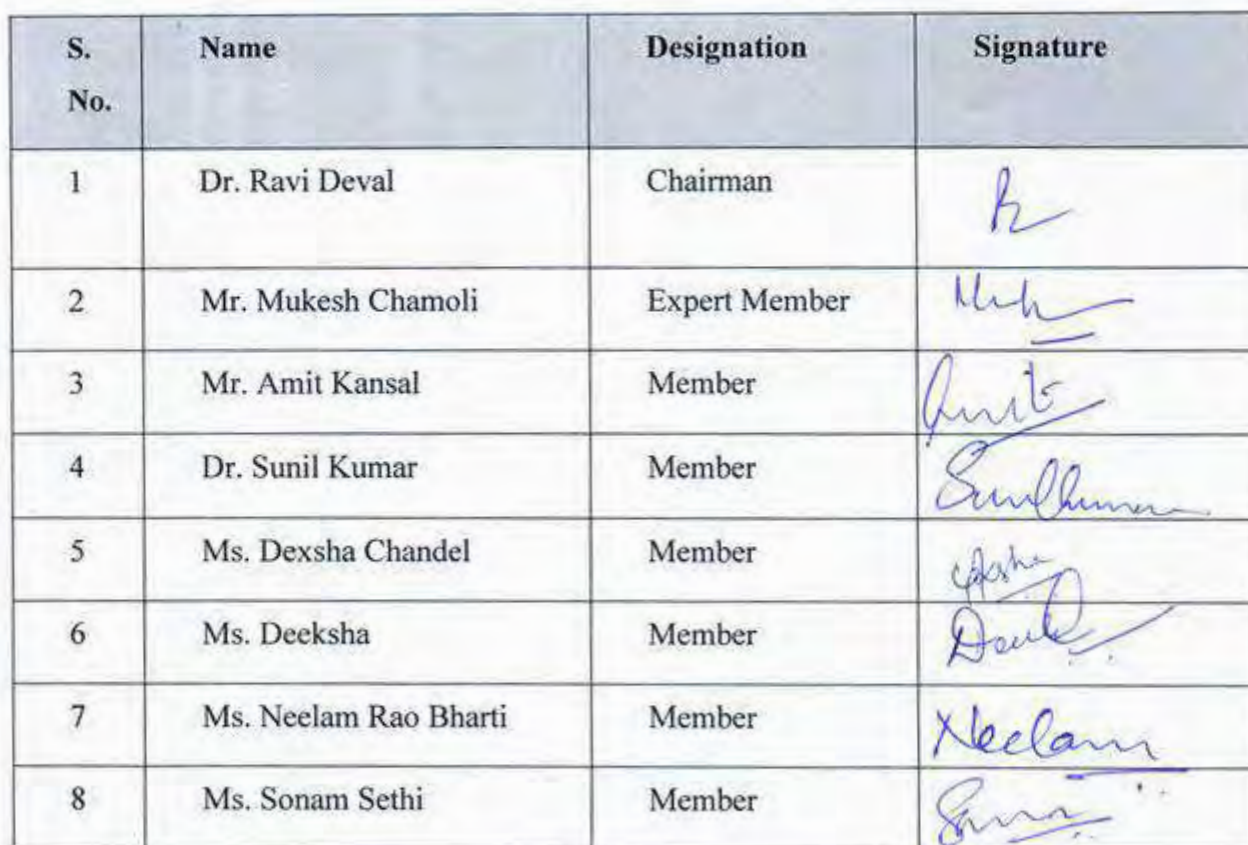 S. No. Name Designation Signature
1 Dr. Ravi Deval Chairman
2 Mr. Mukesh Chamoli Expert Member
3 Mr. Amit Kansal Member Amit
4 Dr. Sunil Kumar Member
5 Ms. Dexsha Chandel Member
6 Ms. Deeksha Member
7 Ms. Neelam Rao Bharti Member Neelam
8 Ms. Sonam Sethi Member